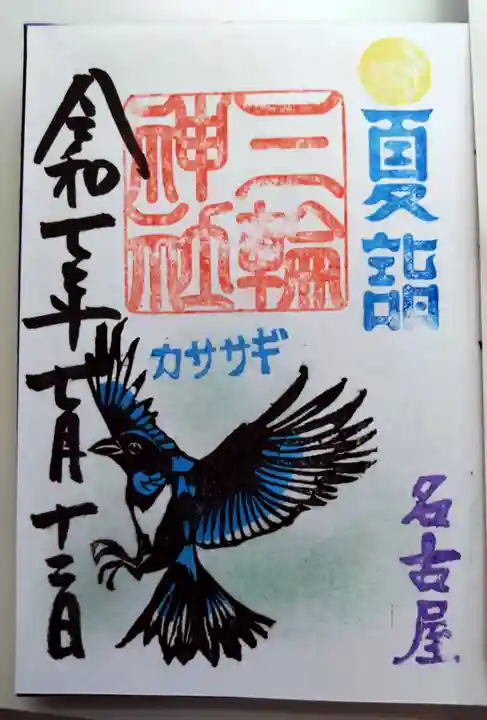 夏詣
名古屋
三輪
神社
カササギ
令和七年七月十二日